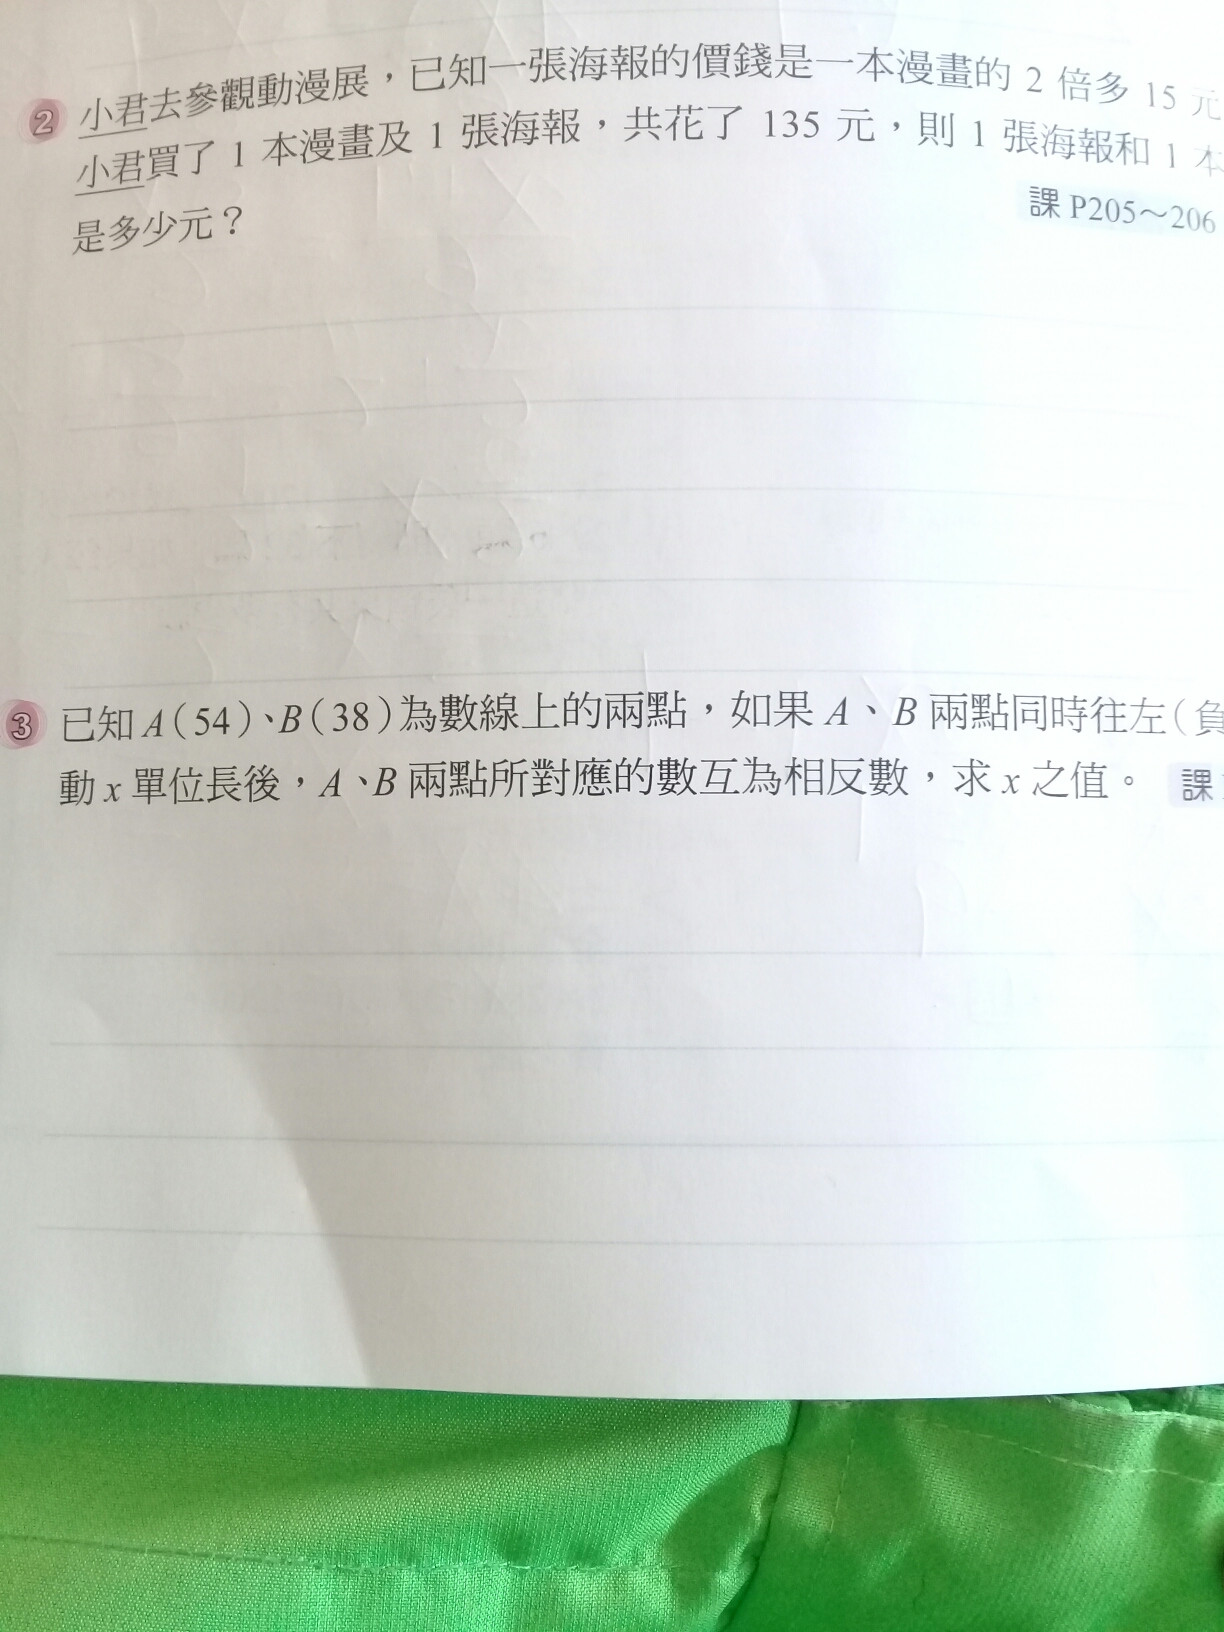 ② 小君去參觀動漫展，已知一張海報的價錢是一本漫畫的 2 倍多 15 元
小君買了 1 本漫畫及 1 張海報，共花了 135 元，則 1 張海報和 1 本
是多少元？
課 P205～206
③ 已知 A（54）、B（38）為數線上的兩點，如果 A、B 兩點同時往左（負
動 x 單位長後，A、B 兩點所對應的數互為相反數，求 x 之值。 課